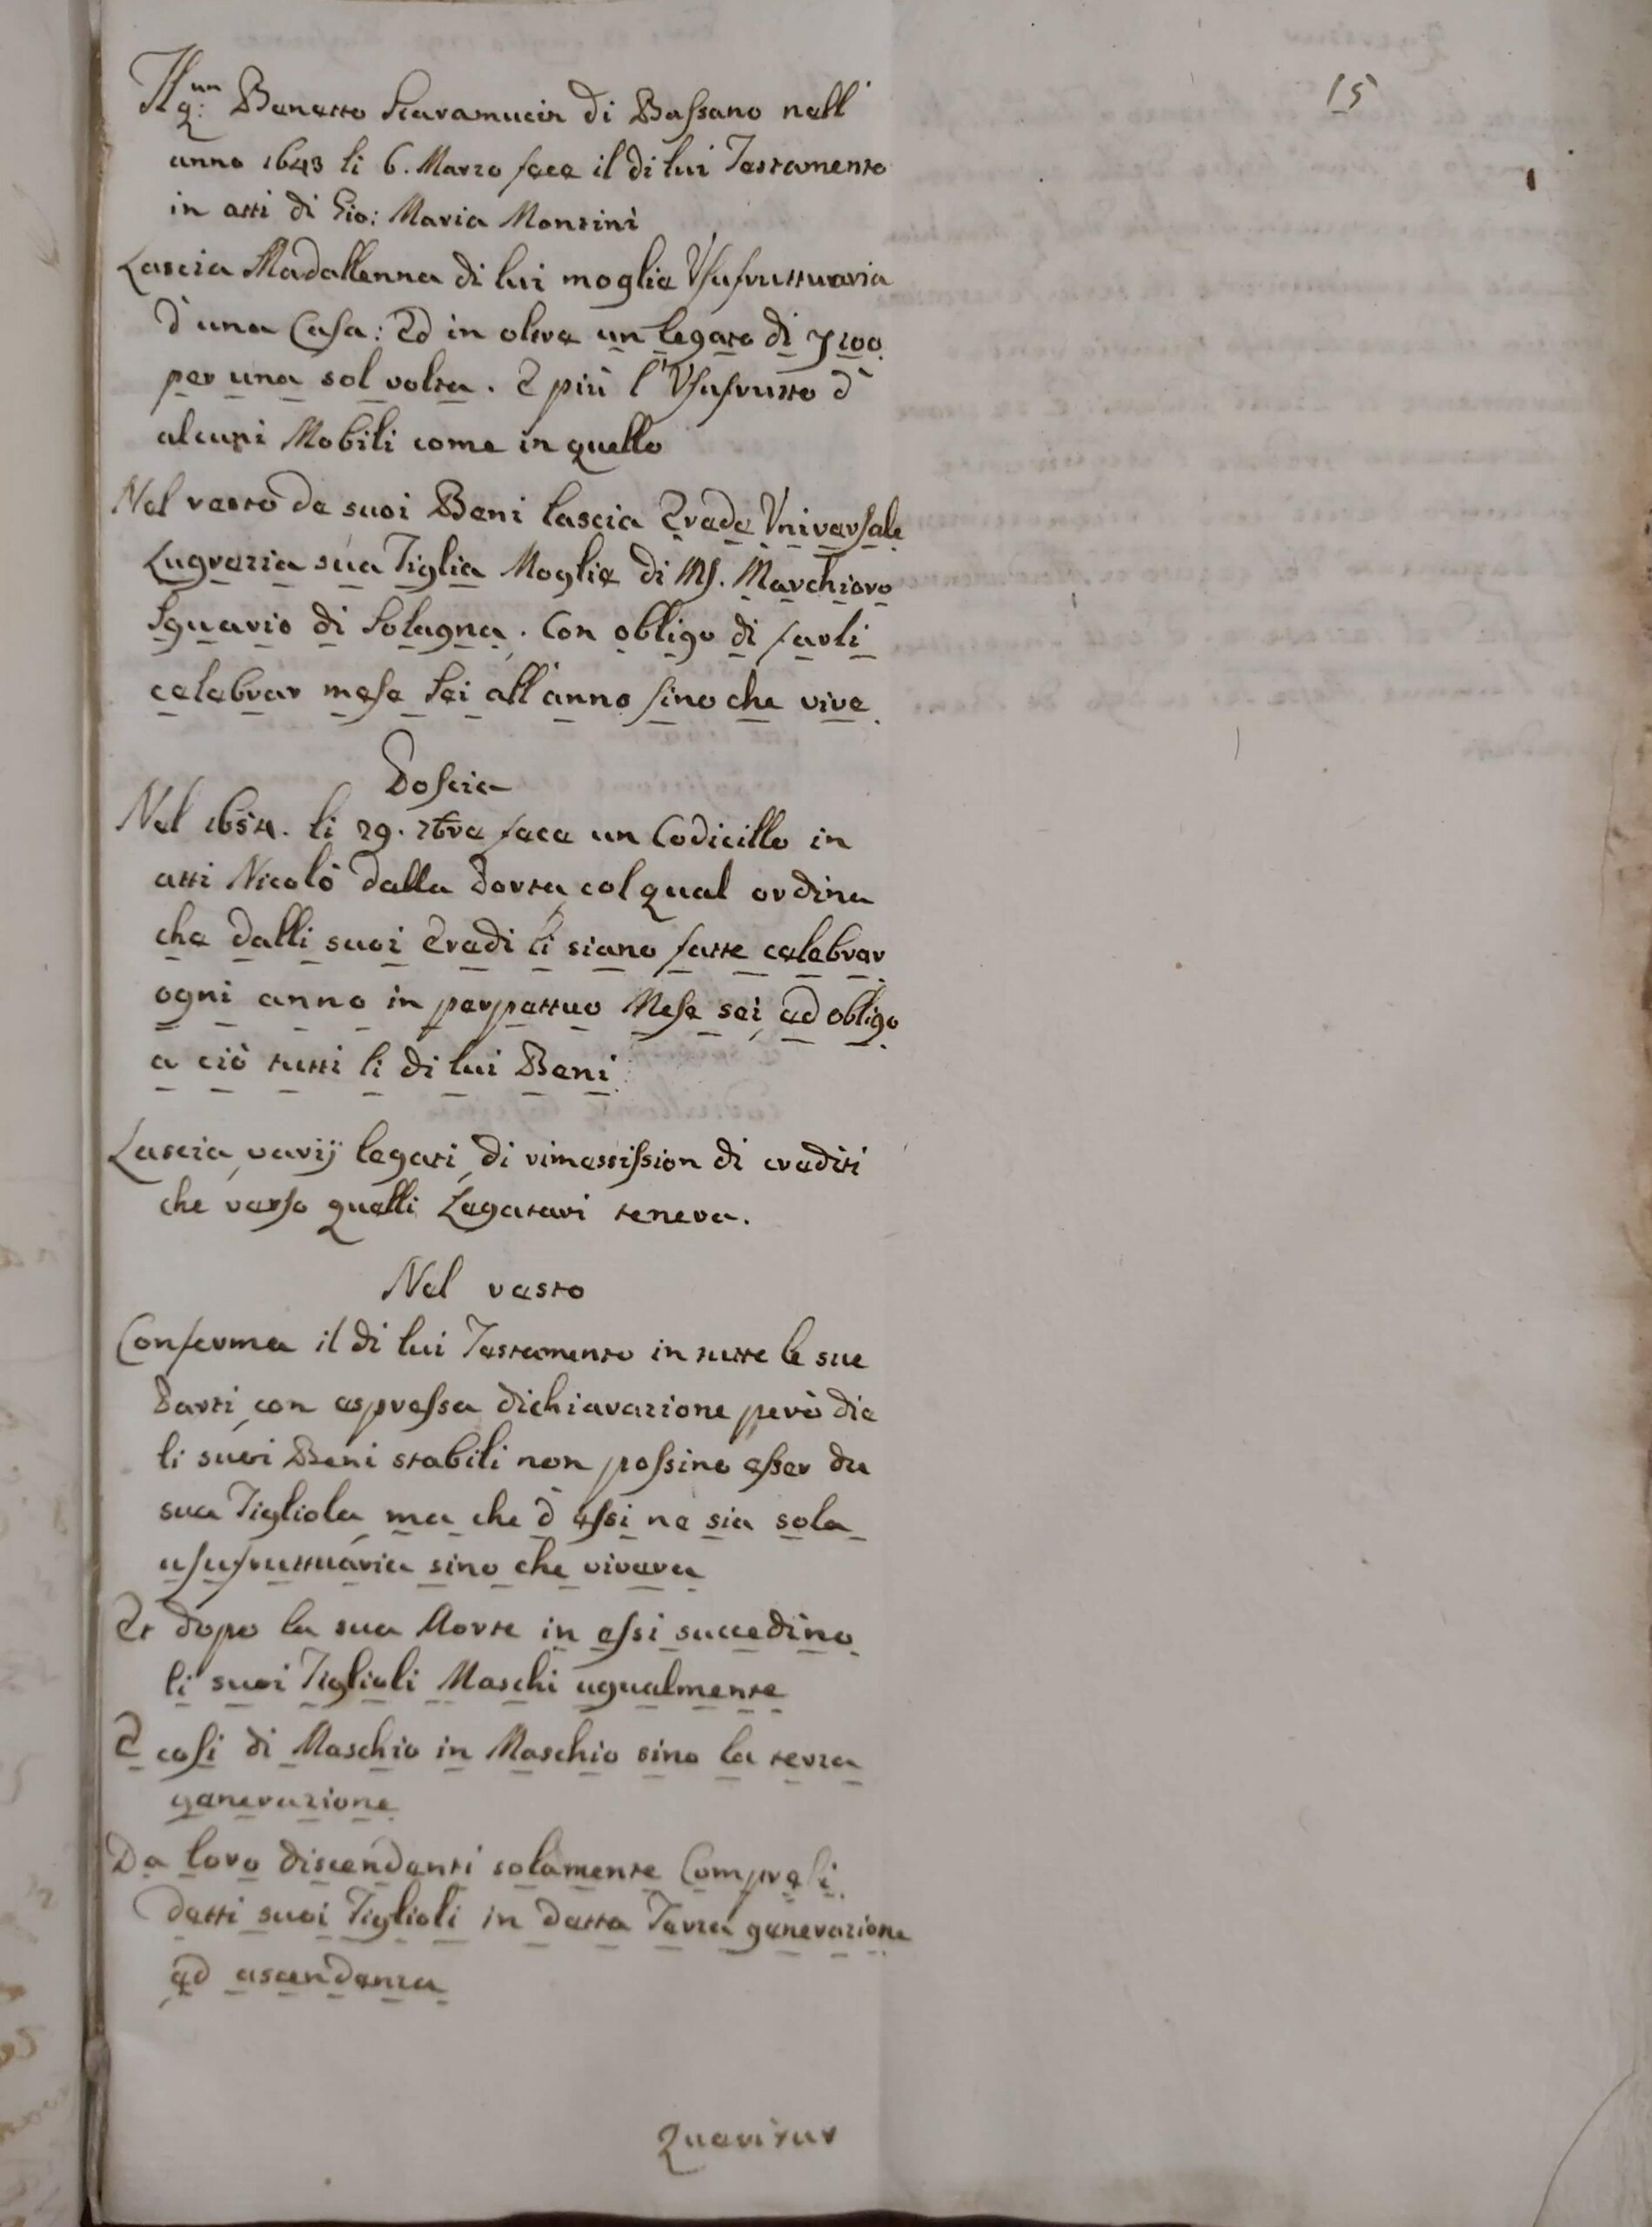 15
Il qm: Benetto Scaramucin di Bassano nell'
anno 1643 li 6. Marzo fece il di lui Testamento
in atti di Gio: Maria Montini
Lascia Madallenna di lui moglie Usufruttuaria
d'una Casa: Ed in oltre un legato di 100
per una sol volta. E più l'Usufrutto d'
alcuni Mobili come in quello
Nel resto de suoi Beni lascia Erede Universale
Lugrezia sua Figlia Moglie di Ms. Marchioro
Sguario di Solagna. Con obligo di farli
celebrar mese sei all'anno sino che vive.
Poscia
Nel 1654. li 29. 7bre fece un Codicillo in
atti Nicolò dalla Porta, col qual ordina
che dalli suoi Eredi li siano fatte celebrar
ogni anno in perpettuo Mese sei, ed obligo
a ciò tutti li di lui Beni.
Lascia varij legati, di rimessission di crediti
che verso quelli Legatari teneva.
Nel resto
Conferma il di lui Testamento in tutte le sue
Parti, con espressa dichiarazione però che
li suoi Beni stabili non possino esser da
sua Figliola, ma che d'essi ne sia sola
usufruttuaria sino che vivera
Et dopo la sua Morte in essi succedino
li suoi Figlioli Maschi ugualmente
E cosi di Maschio in Maschio sino la terza
generazione
Da loro discendenti solamente Compresi
detti suoi Figlioli in detta Terza generazione
ed ascendenza
Quæritur